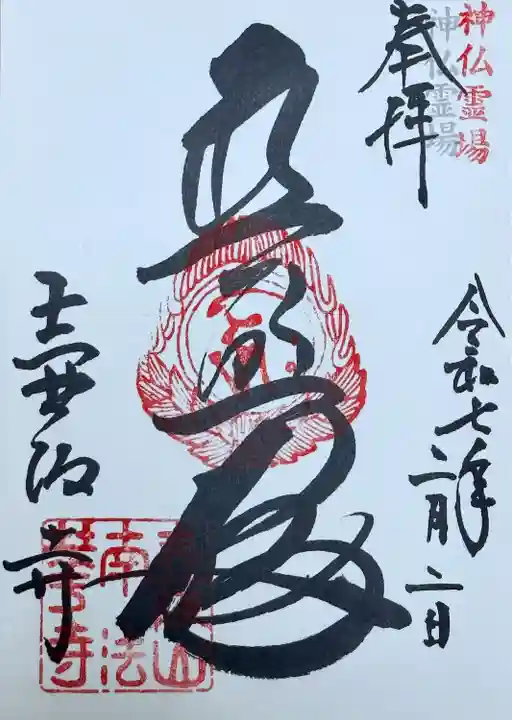 神仏霊場
神仏霊場
奉拝
令和七年二月二日
普照殿
壷阪寺
南法
華寺